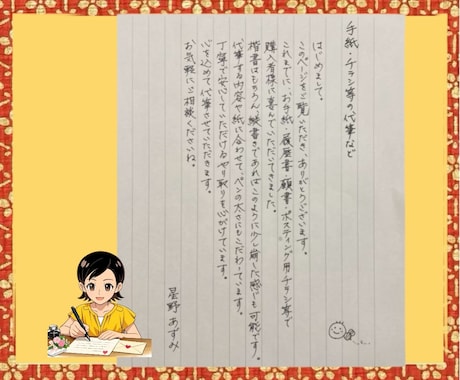 手紙・チラシ等の代筆など
はじめまして。
このページをご覧いただき、ありがとうございます。
これまでに、お手紙・履歴書・願書・ポスティング用チラシ等で
購入者様に喜んでいただいてきました。
楷書はもちろん、縦書きであればこのように少し崩した感じも可能です。
代筆する内容や紙に合わせて、ペンの太さにもこだわっています。
丁寧で安心していただけるやり取りを心がけています。
心を込めて代筆させていただきます。
お気軽にご相談くださいね。
星野 あずみ